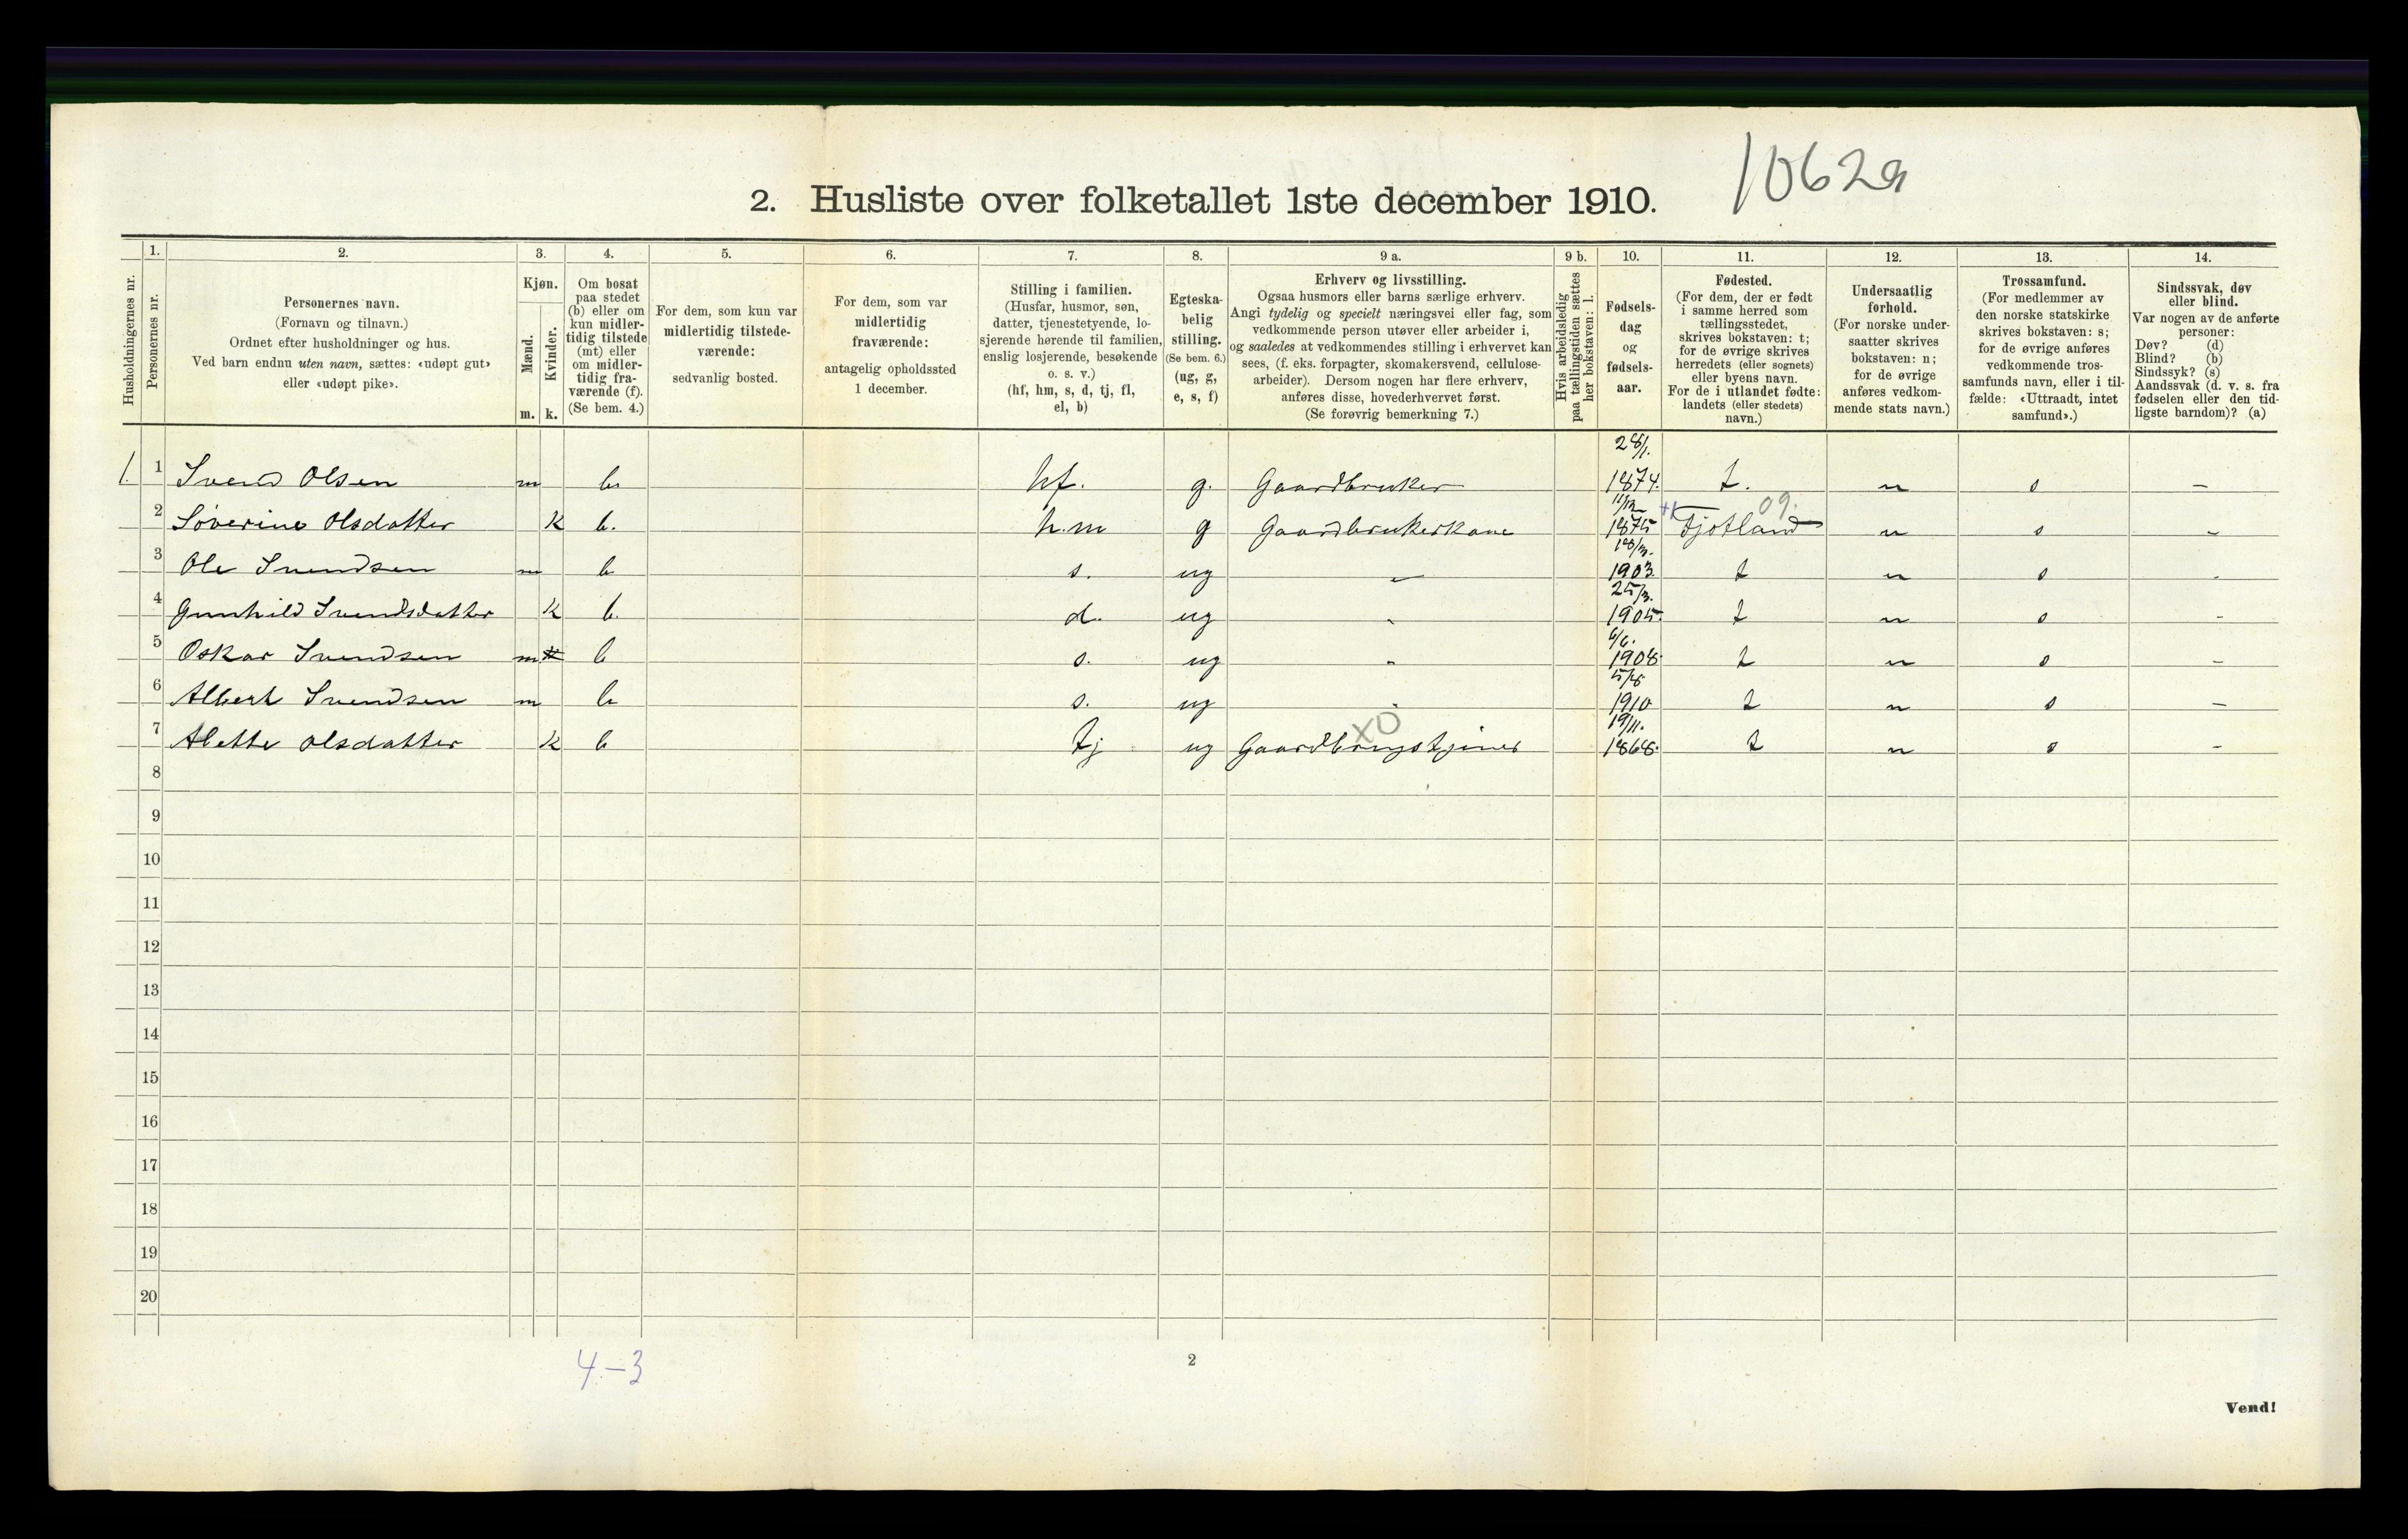 10629
2. Husliste over folketallet 1ste december 1910.
Husholdningernes nr.
1. Personernes nr.
2. Personernes navn. (Fornavn og tilnavn.) Ordnet efter husholdninger og hus. Ved barn endnu uten navn, sættes: «udøpt gut» eller «udøpt pike».
3. Kjøn. Mænd. m. Kvinder. k.
4. Om bosat paa stedet (b) eller om kun midlertidig tilstede (mt) eller om midlertidig fraværende (f). (Se bem. 4.)
5. For dem, som kun var midlertidig tilstedeværende: sedvanlig bosted.
6. For dem, som var midlertidig fraværende: antagelig opholdssted 1 december.
7. Stilling i familien. (Husfar, husmor, søn, datter, tjenestetyende, losjerende hørende til familien, enslig losjerende, besøkende o. s. v.) (hf, hm, s, d, tj, fl, el, b)
8. Egteskabelig stilling. (Se bem. 6.) (ug, g, e, s, f)
9 a. Erhverv og livsstilling. Ogsaa husmors eller barns særlige erhverv. Angi tydelig og specielt næringsvei eller fag, som vedkommende person utøver eller arbeider i, og saaledes at vedkommendes stilling i erhvervet kan sees, (f. eks. forpagter, skomakersvend, cellulosearbeider). Dersom nogen har flere erhverv, anføres disse, hovederhvervet først. (Se forøvrig bemerkning 7.)
9 b. Hvis arbeidsledig paa tællingstiden sættes her bokstaven: l.
10. Fødselsdag og fødselsaar.
11. Fødested. (For dem, der er født i samme herred som tællingsstedet, skrives bokstaven: t; for de øvrige skrives herredets (eller sognets) eller byens navn. For de i utlandet fødte: landets (eller stedets) navn.)
12. Undersaatlig forhold. (For norske undersaatter skrives bokstaven: n; for de øvrige anføres vedkommende stats navn.)
13. Trossamfund. (For medlemmer av den norske statskirke skrives bokstaven: s; for de øvrige anføres vedkommende trossamfunds navn, eller i tilfælde: «Uttraadt, intet samfund».)
14. Sindssvak, døv eller blind. Var nogen av de anførte personer: Døv? (d) Blind? (b) Sindssyk? (s) Aandssvak (d. v. s. fra fødselen eller den tidligste barndom)? (a)
1. 1 Svend Olsen m b. hf. g. Gaardbruker 28/1. 1874. t. n s –
2 Søverine Olsdatter k b. h.m g Gaardbrukerkone 11/12 1875 Fjotland 09. n s –
3 Ole Svendsen m b s. ug – 18/3. 1903. t n s -
4 Gunhild Svendsdatter k b. d. ug - 25/3. 1905. t n s -
5 Oskar Svendsen m b s. ug - 6/6. 1908. t n s –
6 Albert Svendsen m b s. ug - 5/8 1910 t n s –
7 Alette Olsdatter k b tj ug Gaardbrugstjener XO 19/11. 1868. t n s –
8
9
10
11
12
13
14
15
16
17
18
19
20
4–3
2
Vend!